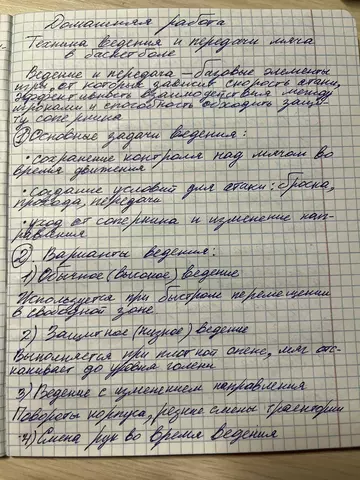 Домашняя работа
Техника ведения и передачи мяча
в баскетболе
Ведение и передача – базовые элементы
игры, от которых зависит скорость атаки,
эффективных взаимодействия между
игроками и способность обходить защи-
ту соперника
① Основные задачи ведения:
• сохранение контроля над мячом во
время движения
• создание условий для атаки: броска,
прохода, передачи
• уход от соперника и изменение нап-
равления
②. Варианты ведения:
1) Обычное (высокое) ведение
Используется при быстром перемещении
в свободной зоне
2) Защитное (низкое) ведение
Выполняется при плотной опеке, мяч отс-
какивает до уровня голени
3) Ведение с изменением направления
Повороты корпуса, резкие смены траектории
4) Смена рук во время ведения